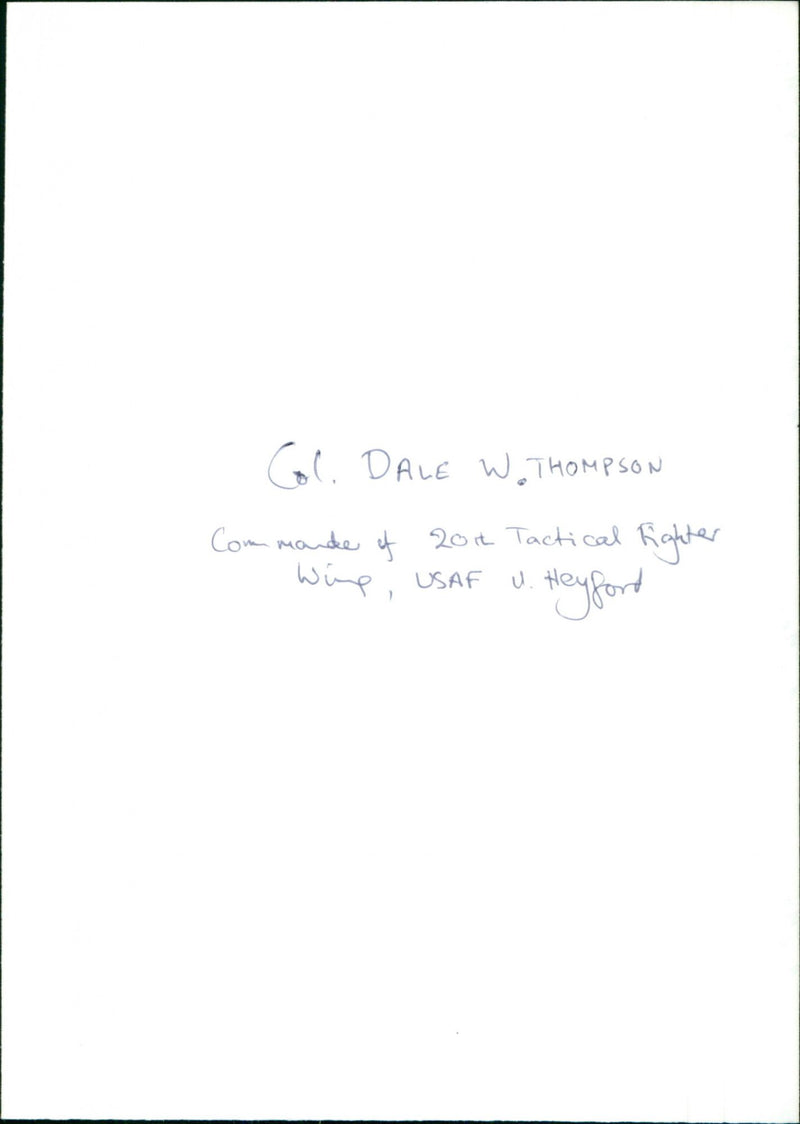 Col. DALE W. THOMPSON
Commander of 20th Tactical Fighter
Wing, USAF U. Heyford